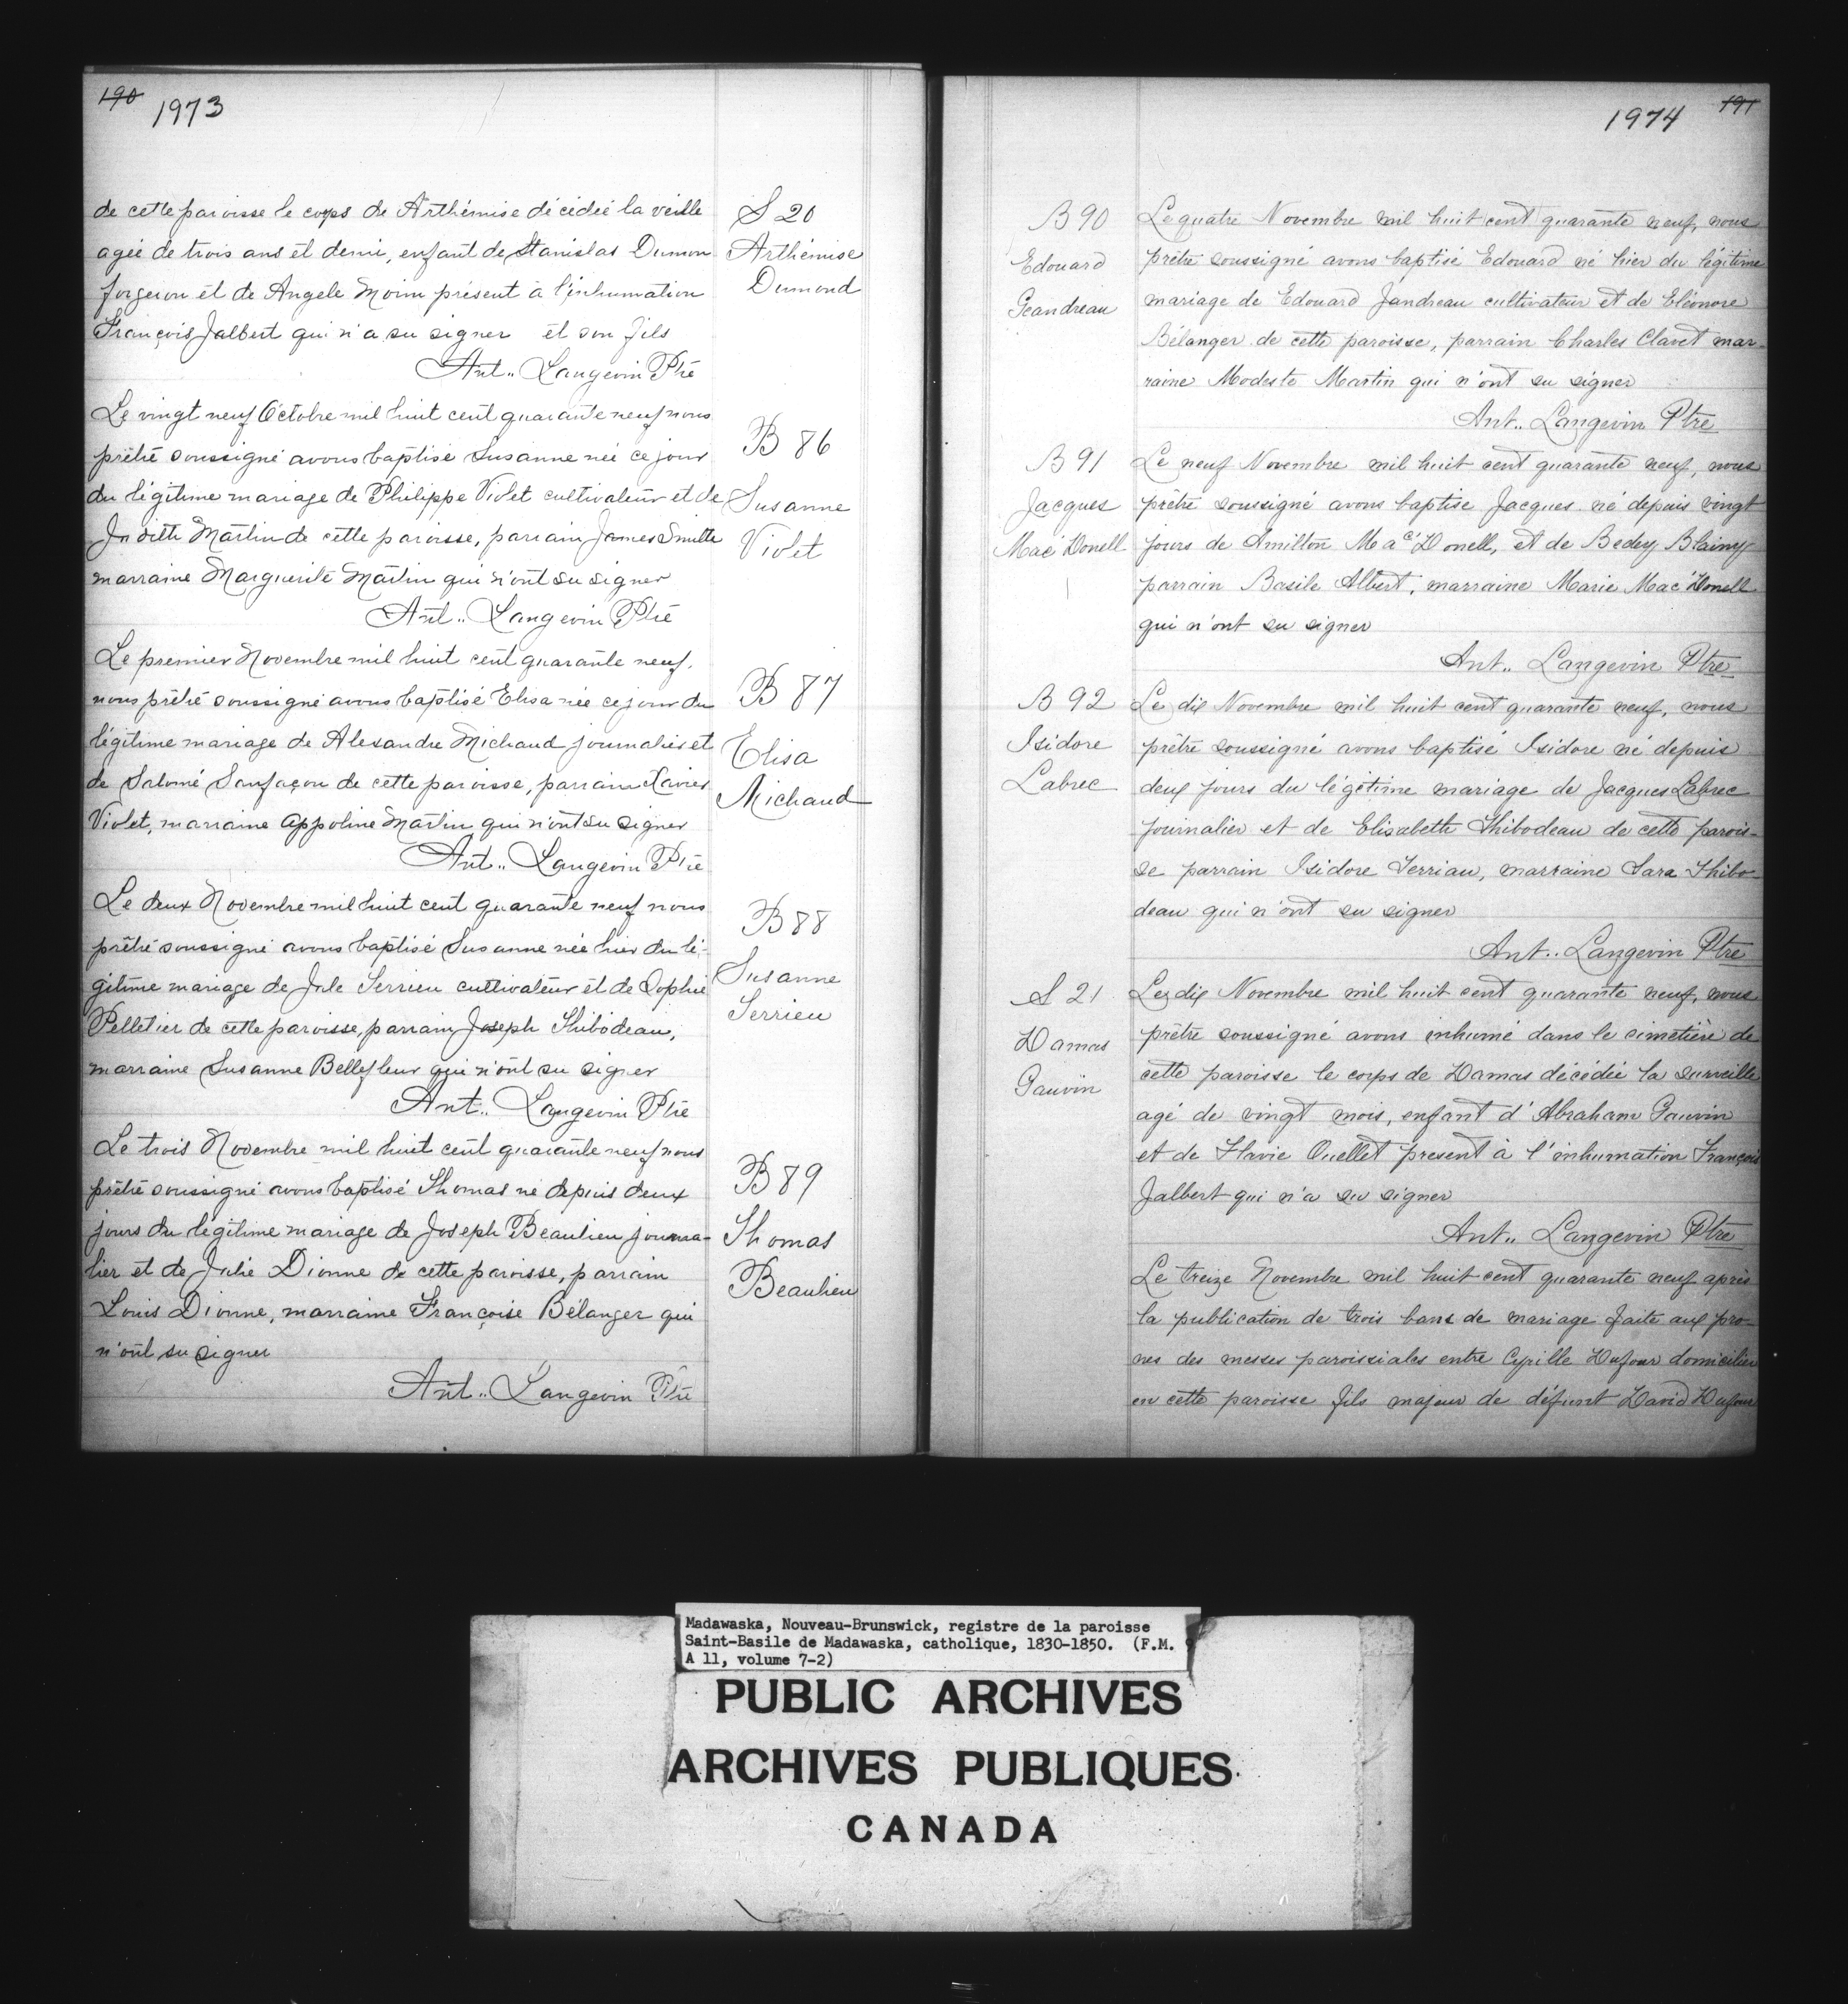 190 1973
de cette paroisse le corps de Arthémise décédée la veille
agée de trois ans et demi, enfant de Stanislas Dumon
forgeron et de Angele Morin présent à l'inhumation
François Jalbert qui n'a su signer et son fils
Ant.. Langevin Ptre
S 20
Arthémise
Dumond
Le vingt neuf Octobre mil huit cent quarante neuf nous
prêtre soussigné avons baptisé Susanne née ce jour
du légitime mariage de Philippe Violet cultivateur et de
Judith Martin de cette paroisse, parrain James Smitte
marraine Marguerite Martin qui n'ont su signer
Ant.. Langevin Ptre
B 86
Susanne
Violet
Le premier Novembre mil huit cent quarante neuf.
nous prêtre soussigné avons baptisé Elisa née ce jour du
légitime mariage de Alexandre Michaud journalier et
de Salomé Sanfaçon de cette paroisse, parrain Xavier
Violet, marraine Appoline Martin qui n'ont su signer
Ant.. Langevin Ptre
B 87
Elisa
Michaud
Le deux Novembre mil huit cent quarante neuf nous
prêtre soussigné avons baptisé Susanne née hier du lé-
gitime mariage de Jule Terrien cultivateur et de Sophie
Pelletier de cette paroisse, parrain Joseph Thibodeau,
marraine Susanne Bellefleur qui n'ont su signer
Ant.. Langevin Ptre
B 88
Susanne
Terrien
Le trois Novembre mil huit cent quarante neuf nous
prêtre soussigné avons baptisé Thomas né depuis deux
jours du légitime mariage de Joseph Beaulieu journa-
lier et de Julie Dionne de cette paroisse, parrain
Louis Dionne, marraine Françoise Bélanger qui
n'ont su signer
Ant.. Langevin Ptre
B 89
Thomas
Beaulieu
1974 191
B 90
Edouard
Geandreau
Le quatre Novembre mil huit cent quarante neuf, nous
prêtre soussigné avons baptisé Edouard né hier du légitime
mariage de Edouard Jandreau cultivateur et de Eléonore
Bélanger de cette paroisse, parrain Charles Clavet mar-
raine Modeste Martin qui n'ont su signer
Ant.. Langevin Ptre
B 91
Jacques
Mac Donell
Le neuf Novembre mil huit cent quarante neuf, nous
prêtre soussigné avons baptise Jacques né depuis vingt
jours de Amilton Mac Donell, et de Bedey Blainy
parrain Basile Albert, marraine Marie Mac Donell
qui n'ont su signer
Ant.. Langevin Ptre
B 92
Isidore
Labrec
Le dix Novembre mil huit cent quarante neuf, nous
prêtre soussigné avons baptisé Isidore né depuis
deux jours du légitime mariage de Jacques Labrec
journalier et de Elisabeth Thibodeau de cette parois-
se parrain Isidore Terriau, marraine Sara Thibo-
deau qui n'ont su signer
Ant.. Langevin Ptre
S 21
Damas
Gauvin
Le dix Novembre mil huit cent quarante neuf, nous
prêtre soussigné avons inhumé dans le cimetière de
cette paroisse le corps de Damas décédée la surveille
agé de vingt mois, enfant d'Abraham Gauvin
et de Flavie Ouellet present à l'inhumation François
Jalbert qui n'a su signer
Ant.. Langevin Ptre
Le treize Novembre mil huit cent quarante neuf après
la publication de trois bans de mariage faite aux pro-
nes des messes paroissiales entre Cyrille Dufour domicilier
en cette paroisse fils majeur de défunt David Dufour
Madawaska, Nouveau-Brunswick, registre de la paroisse
Saint-Basile de Madawaska, catholique, 1830-1850. (F.M.
A 11, volume 7-2)
PUBLIC ARCHIVES
ARCHIVES PUBLIQUES
CANADA